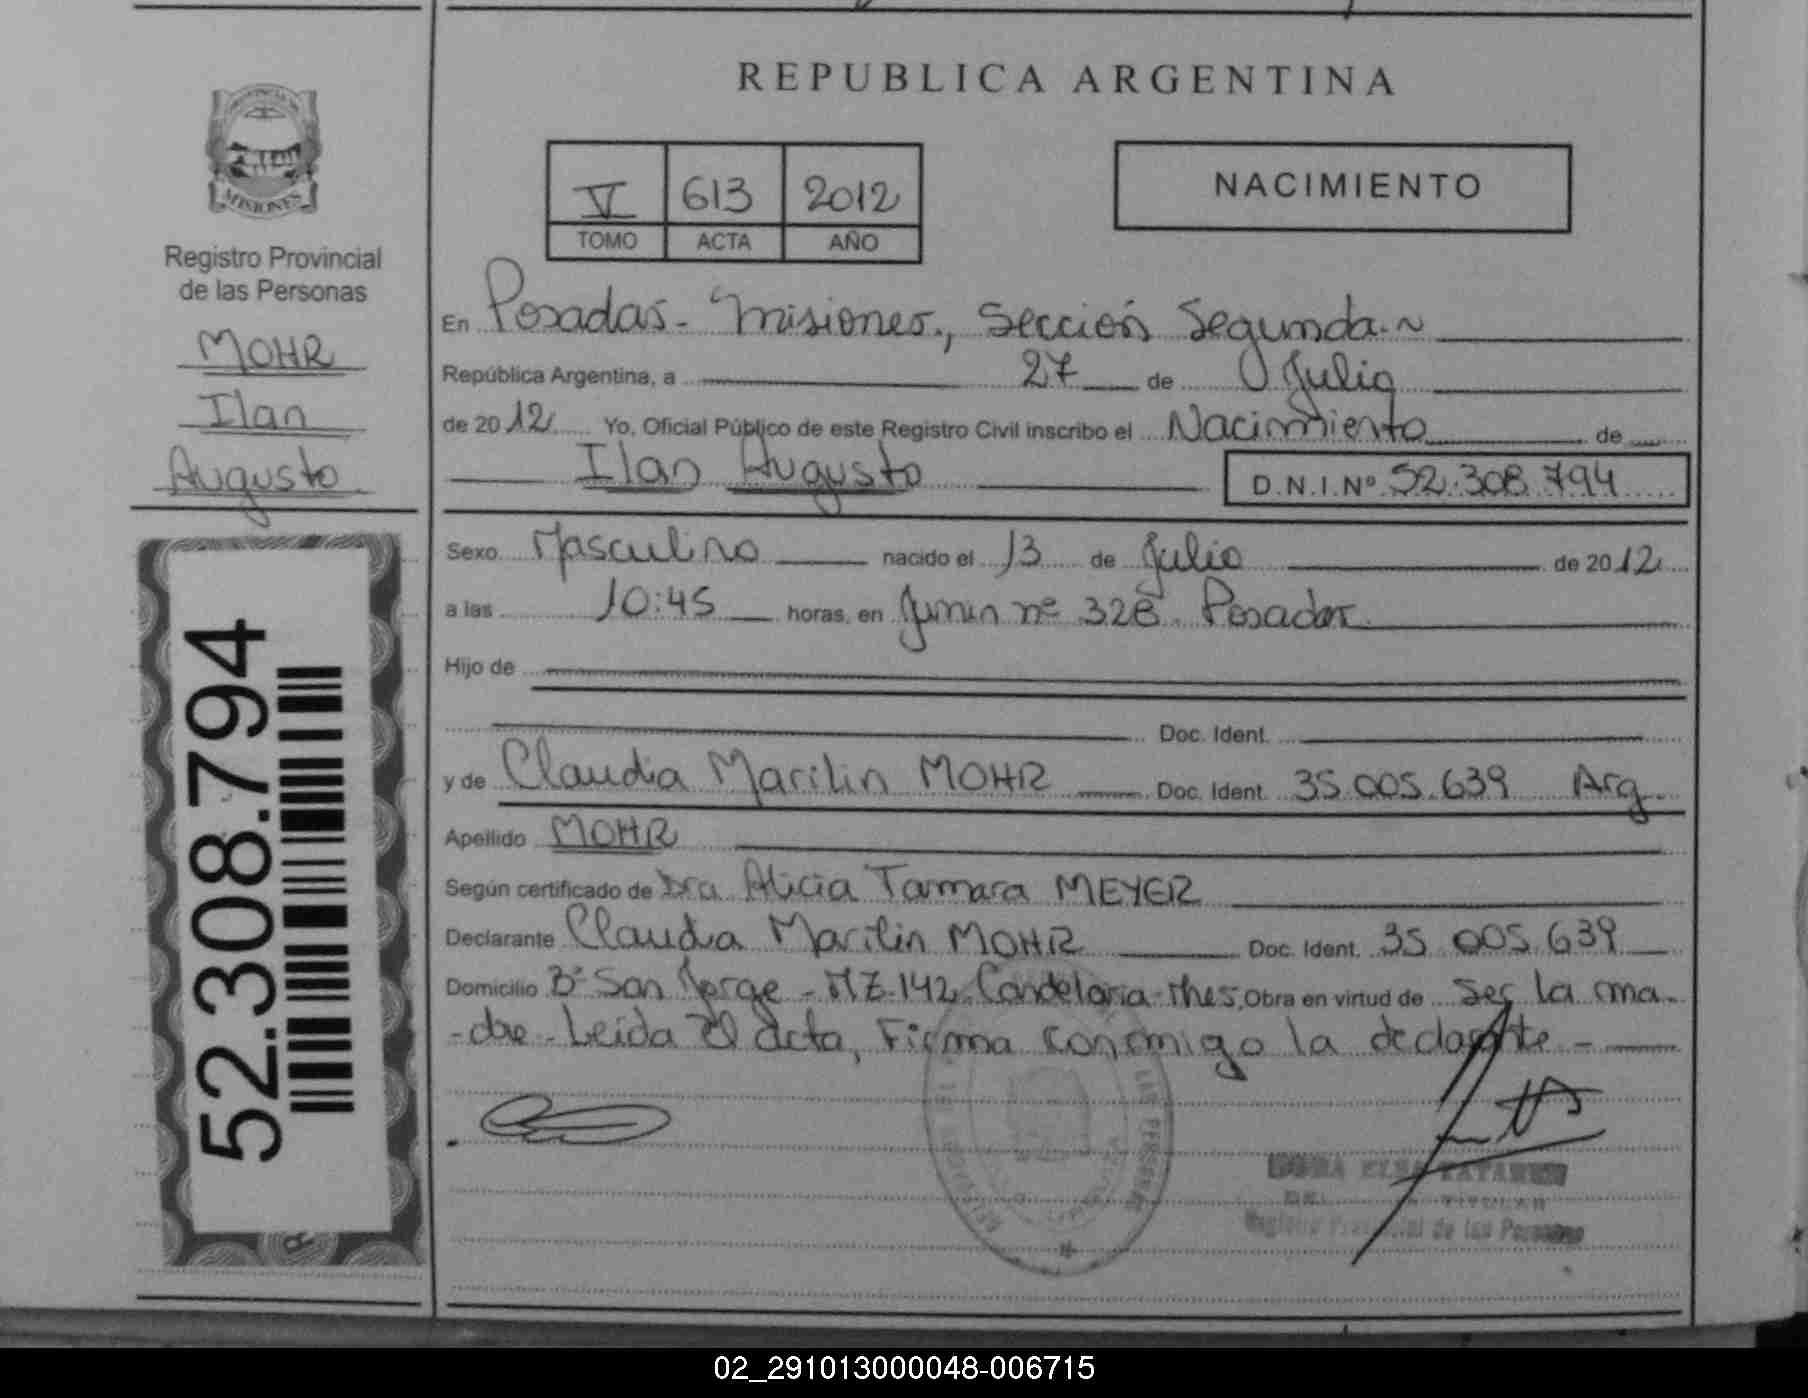 REPUBLICA ARGENTINA
PROVINCIA DE
MISIONES
Registro Provincial
de las Personas
MOHR
Ilan
Augusto
52.308.794
V 613 2012
TOMO ACTA AÑO
NACIMIENTO
En Posadas - Misiones, Sección Segunda.~
República Argentina, a 27 de Julio
de 2012 Yo, Oficial Público de este Registro Civil inscribo el Nacimiento de
Ilan Augusto D.N.I.Nº 52.308.794
Sexo Masculino nacido el 13 de Julio de 2012
a las 10:45 horas, en Junin nº 328. Posadas.
Hijo de
Doc. Ident.
y de Claudia Marilin MOHR Doc. Ident. 35.005.639 Arg.
Apellido MOHR
Según certificado de Dra Alicia Tamara MEYER
Declarante Claudia Marilin MOHR Doc. Ident. 35.005.639
Domicilio Bº San Jorge - MZ.142. Candelaria - Mnes. Obra en virtud de ser la ma-
-dre - Leída el acta, Firma conmigo la declarante -
LAS PERSONAS
TITULAR
Registro Provincial de las Personas
02_291013000048-006715